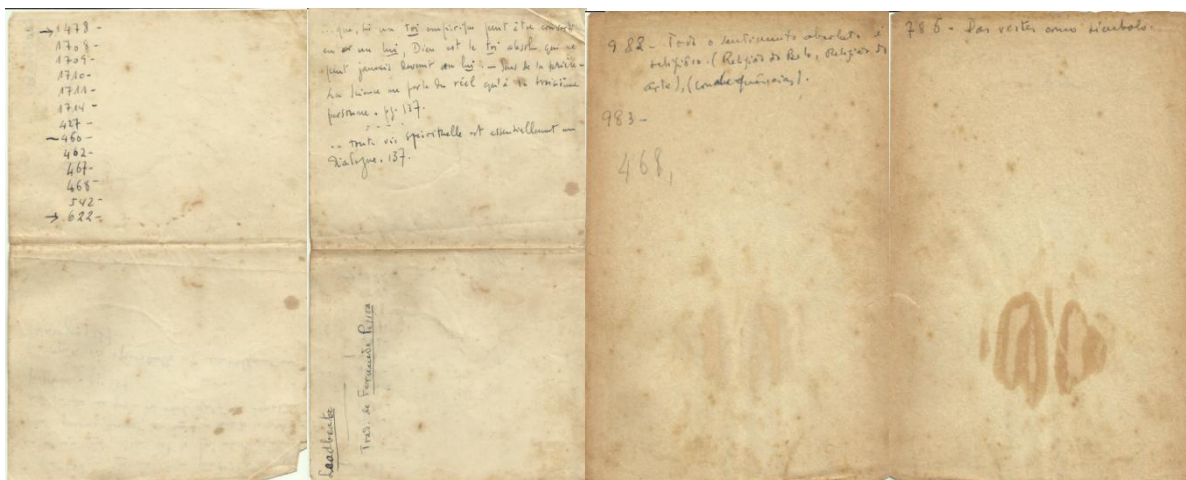 → 1478 -
1708 -
1709 -
1710 -
1711 -
1714 -
427 -
- 460 -
462 -
467 -
468 -
542 -
→ 622 -
...que, si un toi empirique peut être converti
en un lui, Dieu est le toi absolu, qui ne
peut jamais devenir un lui. - Sens de la prière -
La science ne parle du réel qu'à la troisième
personne. pg. 137.
... toute vie spirituelle est essentiellement un
dialogue. 137.
Leadbeater
Trad. de Fernando Pessoa
982 - Todo o sentimento absoluto é
religioso. (Religião do Belo, Religião da
arte), (consequências).
983 -
468,
786 - Das vestes como símbolo.